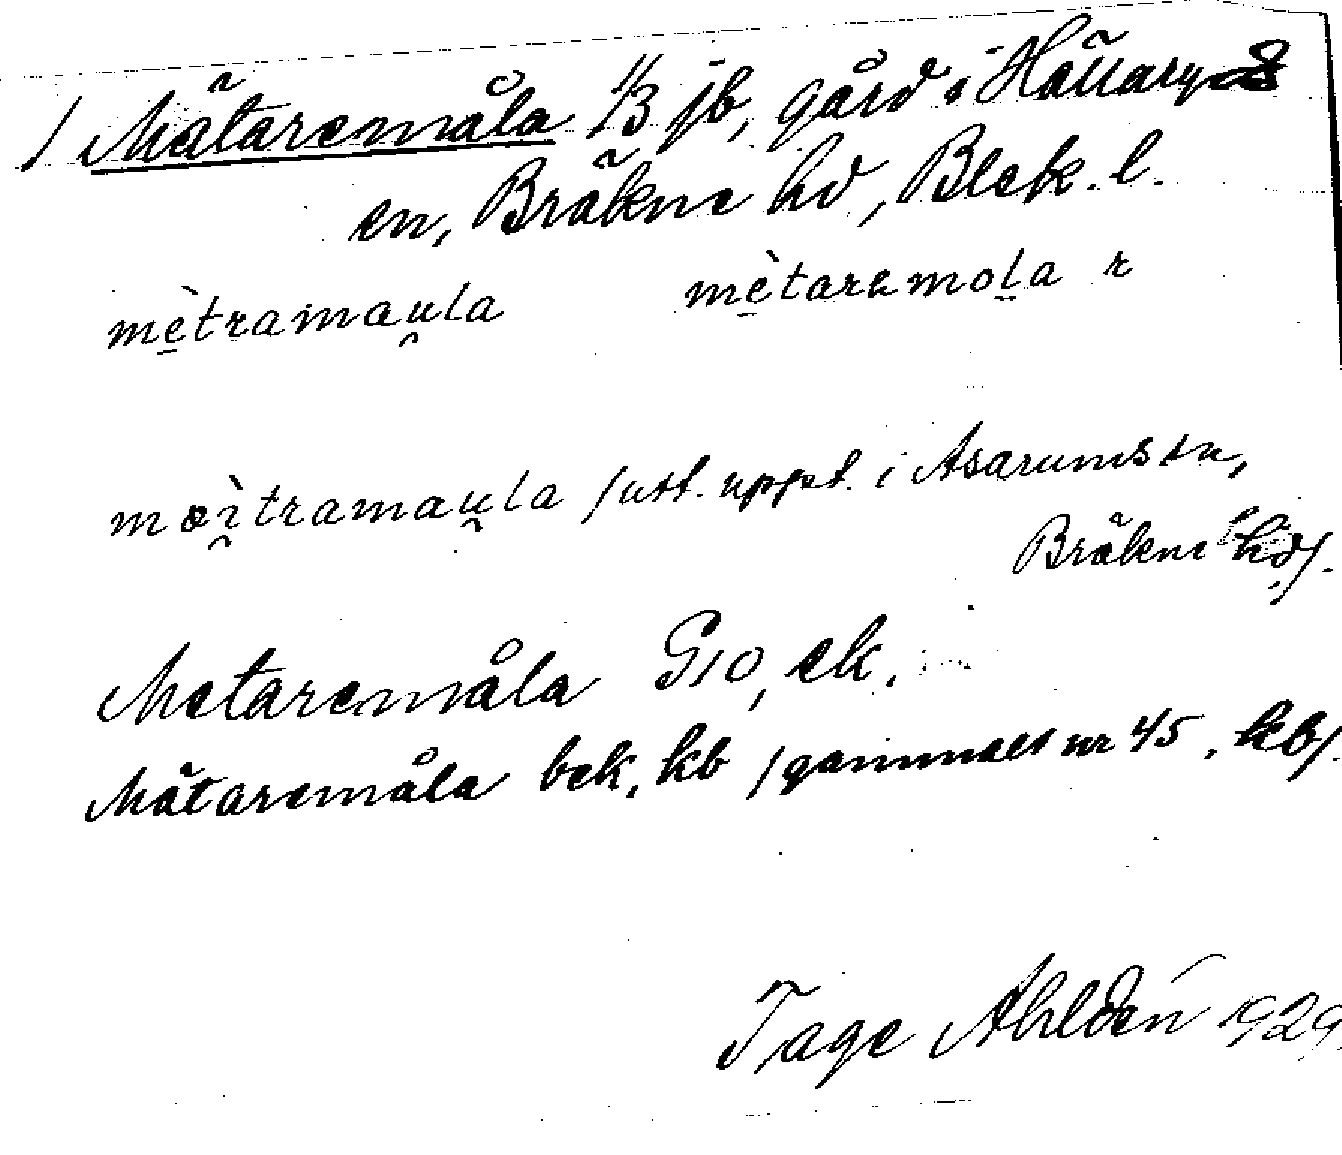 / Mätaremåla 1/3 jb, gård i Hällaryds
sn, Bräkne hd, Blek. l.
mètramau̯la mètaremola r
mæi̯tramau̯la /utt. uppt. i Asarums sn,
Bräkne hd/.
Metaremåla G10, ek.
Mätaremåla bek, kb /gammalt nr 45, kb/.
Tage Ahldén 1929